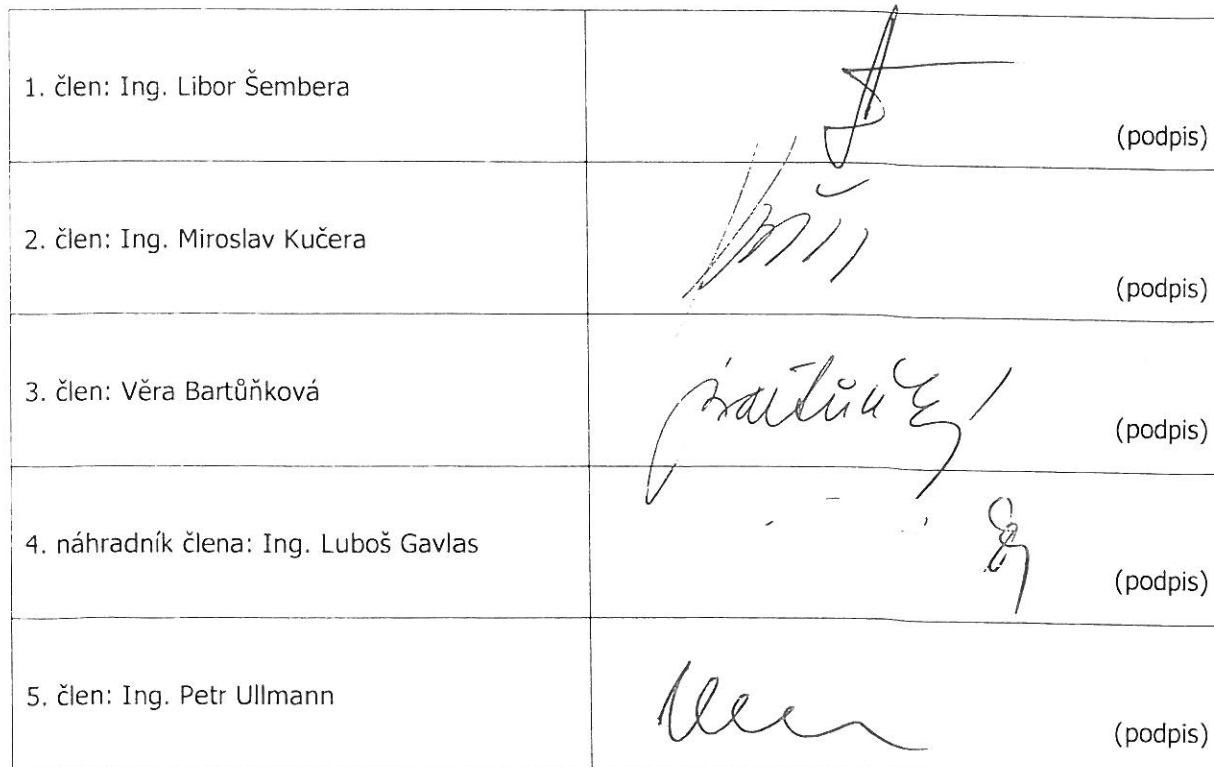 1. člen: Ing. Libor Šembera
(podpis)
2. člen: Ing. Miroslav Kučera
(podpis)
3. člen: Věra Bartůňková
(podpis)
4. náhradník člena: Ing. Luboš Gavlas
(podpis)
5. člen: Ing. Petr Ullmann
(podpis)